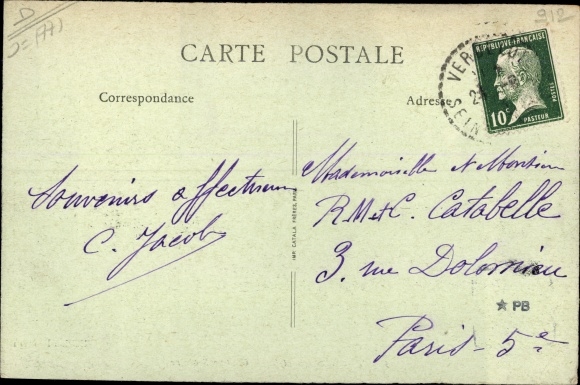 D
912
CARTE POSTALE
Correspondance
Adresse
RÉPUBLIQUE FRANÇAISE
10c
POSTES
PASTEUR
VER
SEIN
Souvenirs affectueux
C. Jacob
IMP. CATALA FRÈRES, PARIS
Mademoiselle et Monsieur
R. M et C. Catabelle
3, rue Dolomieu
Paris - 5e
★ PB